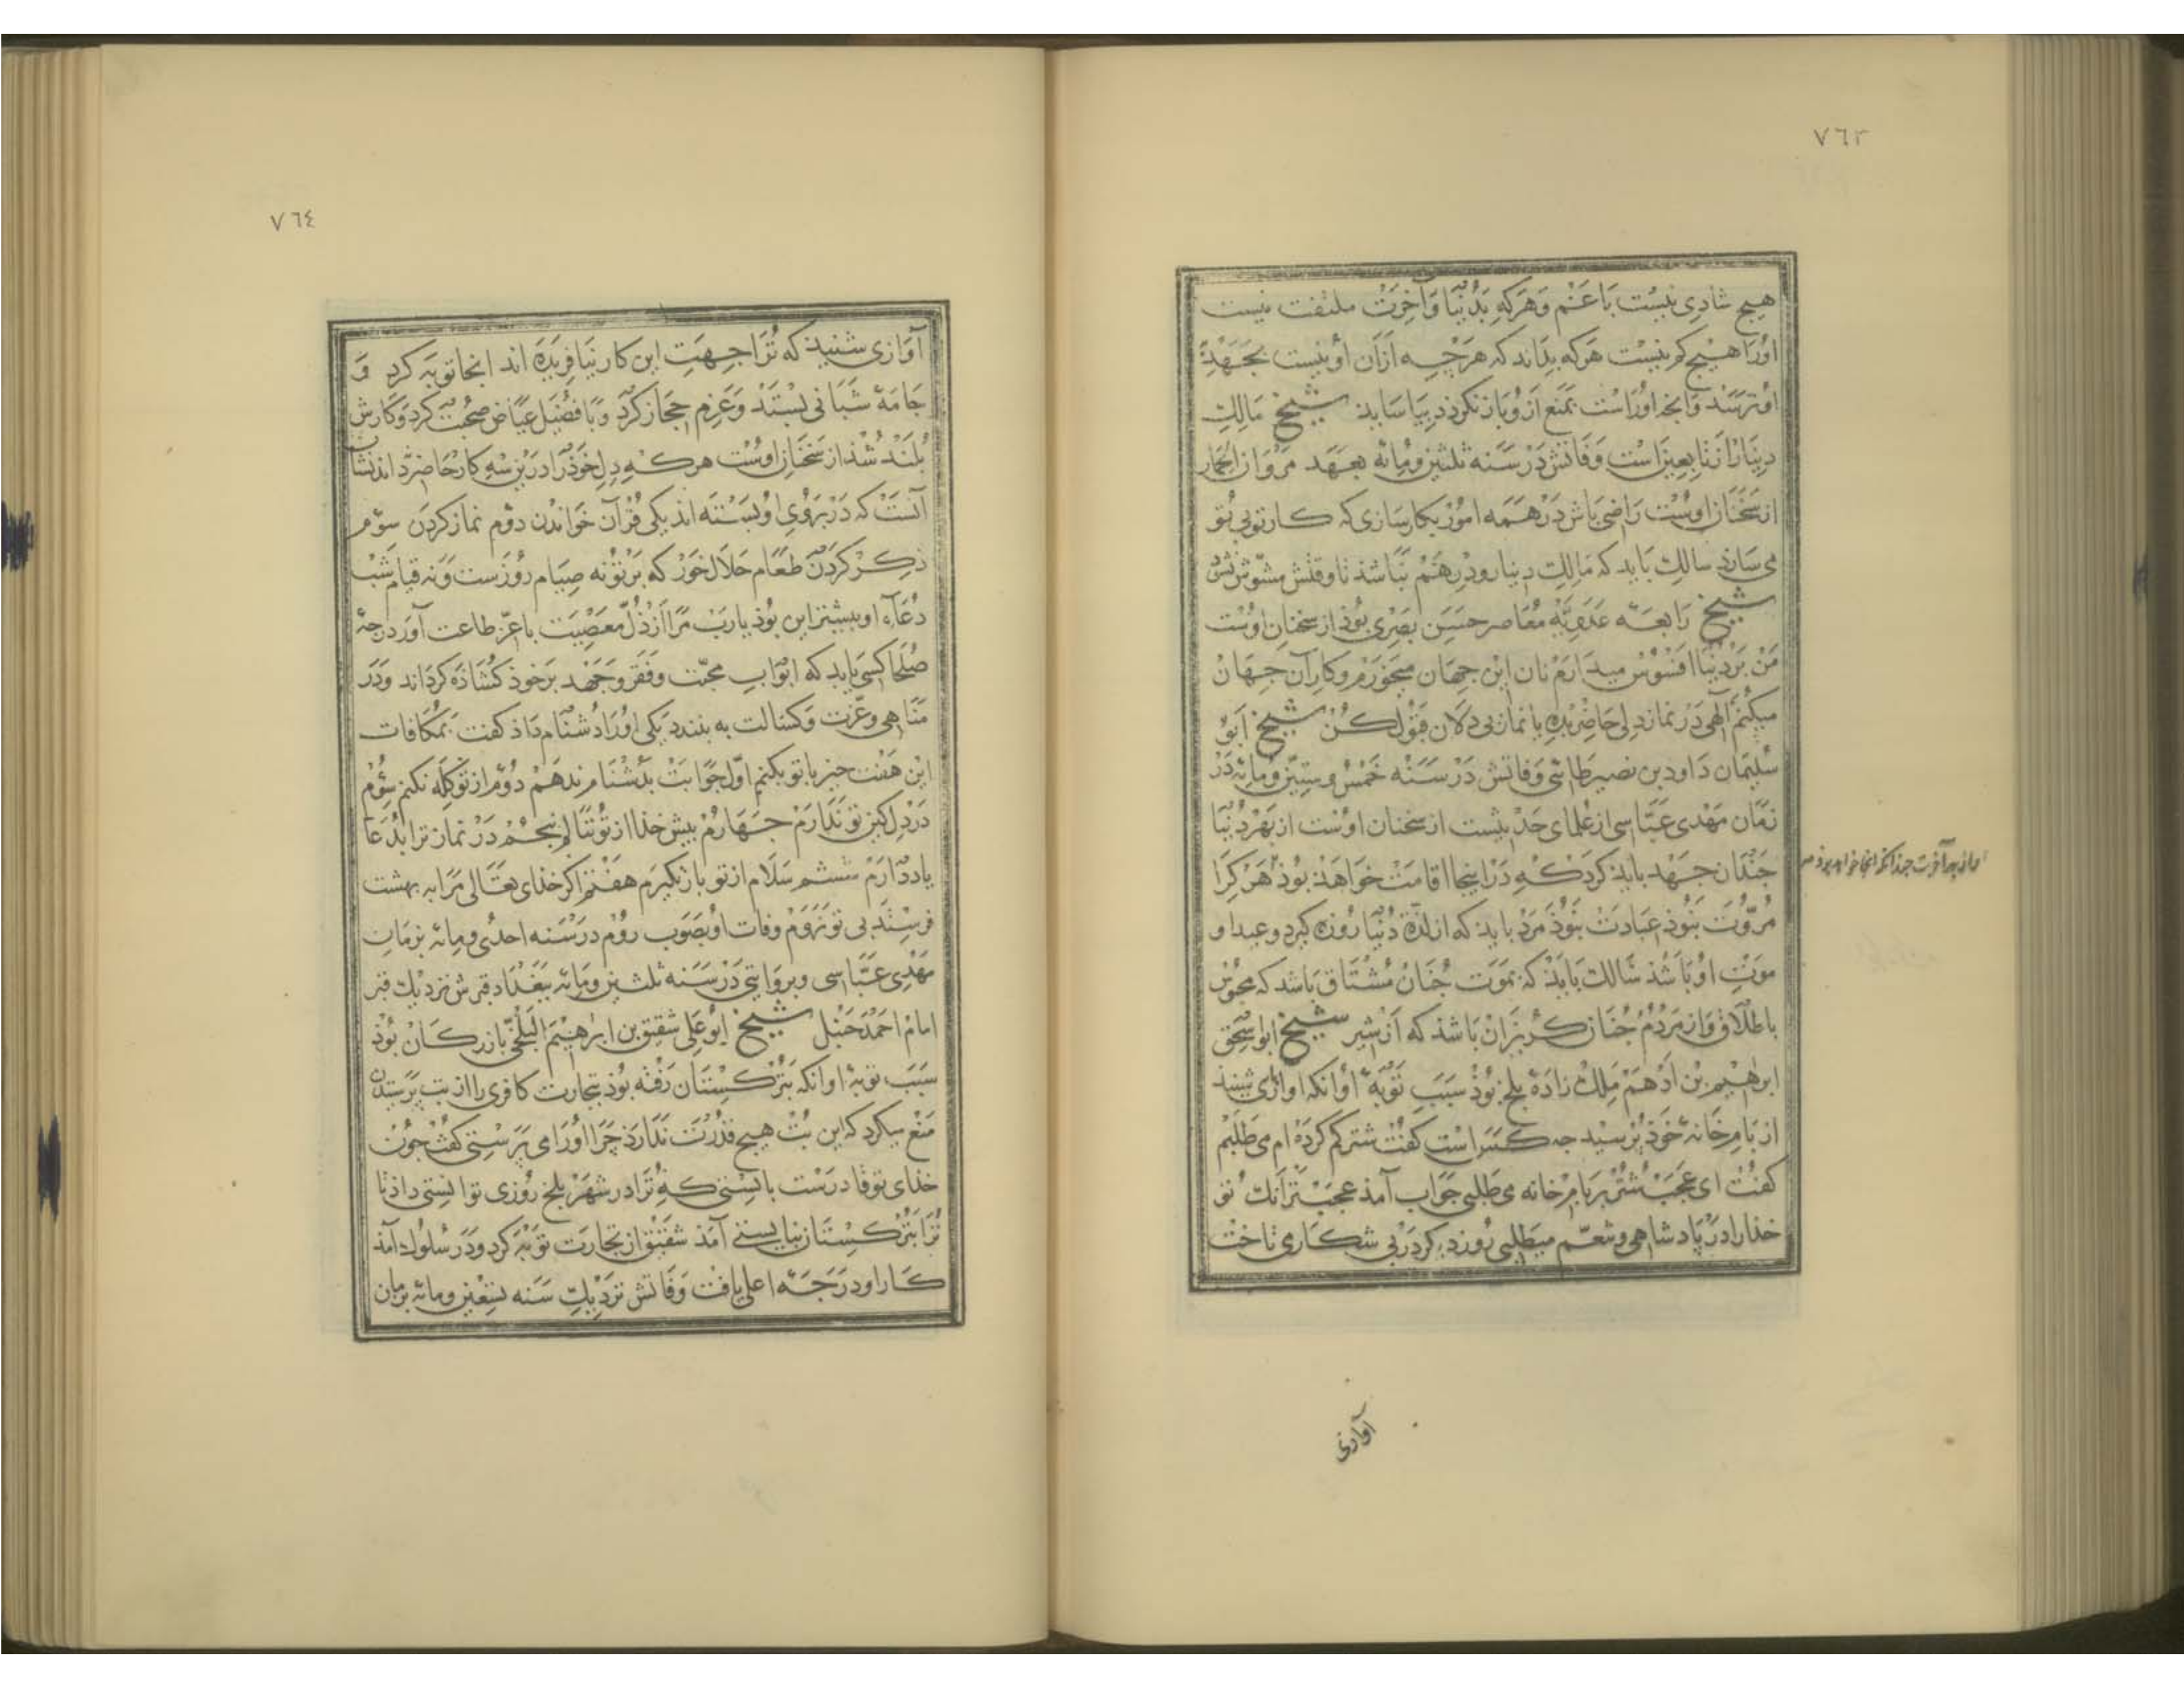 ٧٦٣
هیچ شادی نیست با غم وهرکه بدنیا وآخرت ملتفت نیست
اورا هیچ کم نیست هرکه بداند که هرچه ازآن او نیست بجهد
او نرسد وآنچه اوراست بمنع ازو باز نکردد بیاساید شیخ مالک
دینار از تابعین است وفاتش در سنه ثلثین ومائه بعهد مروان الحمار
ازسخنان اوست راضی باش در همه امور بکارسازی که کار تو بی تو
می سازد سالک باید که مالک دینار ودرهم نباشد تا وقتش مشوش نشود
شیخ رابعه عدویه معاصر حسن بصری بوذ از سخنان اوست
من بر دنیا افسوس میدارم نان این جهان میخورم وکار آن جهان
میکنم الهی در نماز دلی حاضر بده یا نماز بی دلان قبول کن شیخ ابو
سلیمان داود بن نصیر طائی وفاتش در سنه خمس وستین ومائه در
زمان مهدی عباسی از علمای حدیثست از سخنان اوست از بهر دنیا
جندان جهد باید کرد که در اینجا اقامت خواهد بوذ هر کرا
اما از بهر آخرت جندانکه انجا خواهد بوذ
مروت نبوذ عبادت نبوذ مرد باید که از لذة دنیا روزه کیرد وعید او
موت او باشذ سالک بایذ که بموت جنان مشتاق باشد که محبوس
باطلاق واز مردم جنان کریزان باشذ که از شیر شیخ ابو اسحق
ابرهیم بن ادهم ملک زاده بلخ بوذ سبب توبه او آنکه اوازی شنید
از بام خانه خوذ پرسید جه کس است کفت شتر کم کرده ام می طلبم
کفت ای عجب شتر بر بام خانه می طلبی جواب آمذ عجبتر آنک تو
خذارا در پادشاهی وتنعم میطلبی روزدیکر در پی شکاری تاخت
آوازی
٧٦٤
آوازی شنیذ که ترا جهت این کار نیافریده اند انجا توبه کرد و
جامه شبانی بستد وعزم حجاز کرد وبا فضیل عیاض صحبت کرد وکارش
بلند شذ از سخنان اوست هرکه دل خوذرا درین سه کار حاضر نداند نشان
آنست که در بروی او بسته اند یکی قرآن خواندن دوم نماز کردن سوم
ذکر کردن طعام حلال خور که بر تو نه صیام روزست ونه قیام شب
دعاء او بیشتر این بوذ یارب مرا از ذل معصیت با عز طاعت آور درجه
صلحا کسی یابد که ابواب محنت وفقر وجهد بر خوذ کشاذه کرداند ودر
مناهی وعزت وکسالت به بندد یکی اورا دشنام داذ کفت بمکافات
این هفت جیز با تو بکنم اول جوابت بدشنام ندهم دوم از تو کله نکنم سوم
در دل کین تو ندارم جهارم بیش خذا از تو ننالم پنجم در نماز ترا بدعا
یاد دارم ششم سلام از تو باز نکیرم هفتم اکر خذای تعالی مرا به بهشت
فرستد بی تو نروم وفات او بصوب روم در سنه احدی ومائه بزمان
مهدی عباسی وبروایتی در سنه ثلثین ومائه ببغداد قبرش نزدیک قبر
امام احمد حنبل شیخ ابو علی شقیق بن ابرهیم البلخی بازرکان بوذ
سبب توبه او آنکه بترکستان رفته بوذ بتجارت کافری را از بت پرستیدن
منع میکرد که این بت هیچ قدرت ندارذ چرا اورا می پرستی کفت جون
خذای تو قادرست بایستی که ترا در شهر بلخ روزی توانستی داذ تا
ترا بترکستان نبایستی آمذ شقیق از تجارت توبه کرد ودر سلوک آمذ
کار او درجه اعلی یافت وفاتش نزدیک سنه تسعین ومائه بزمان